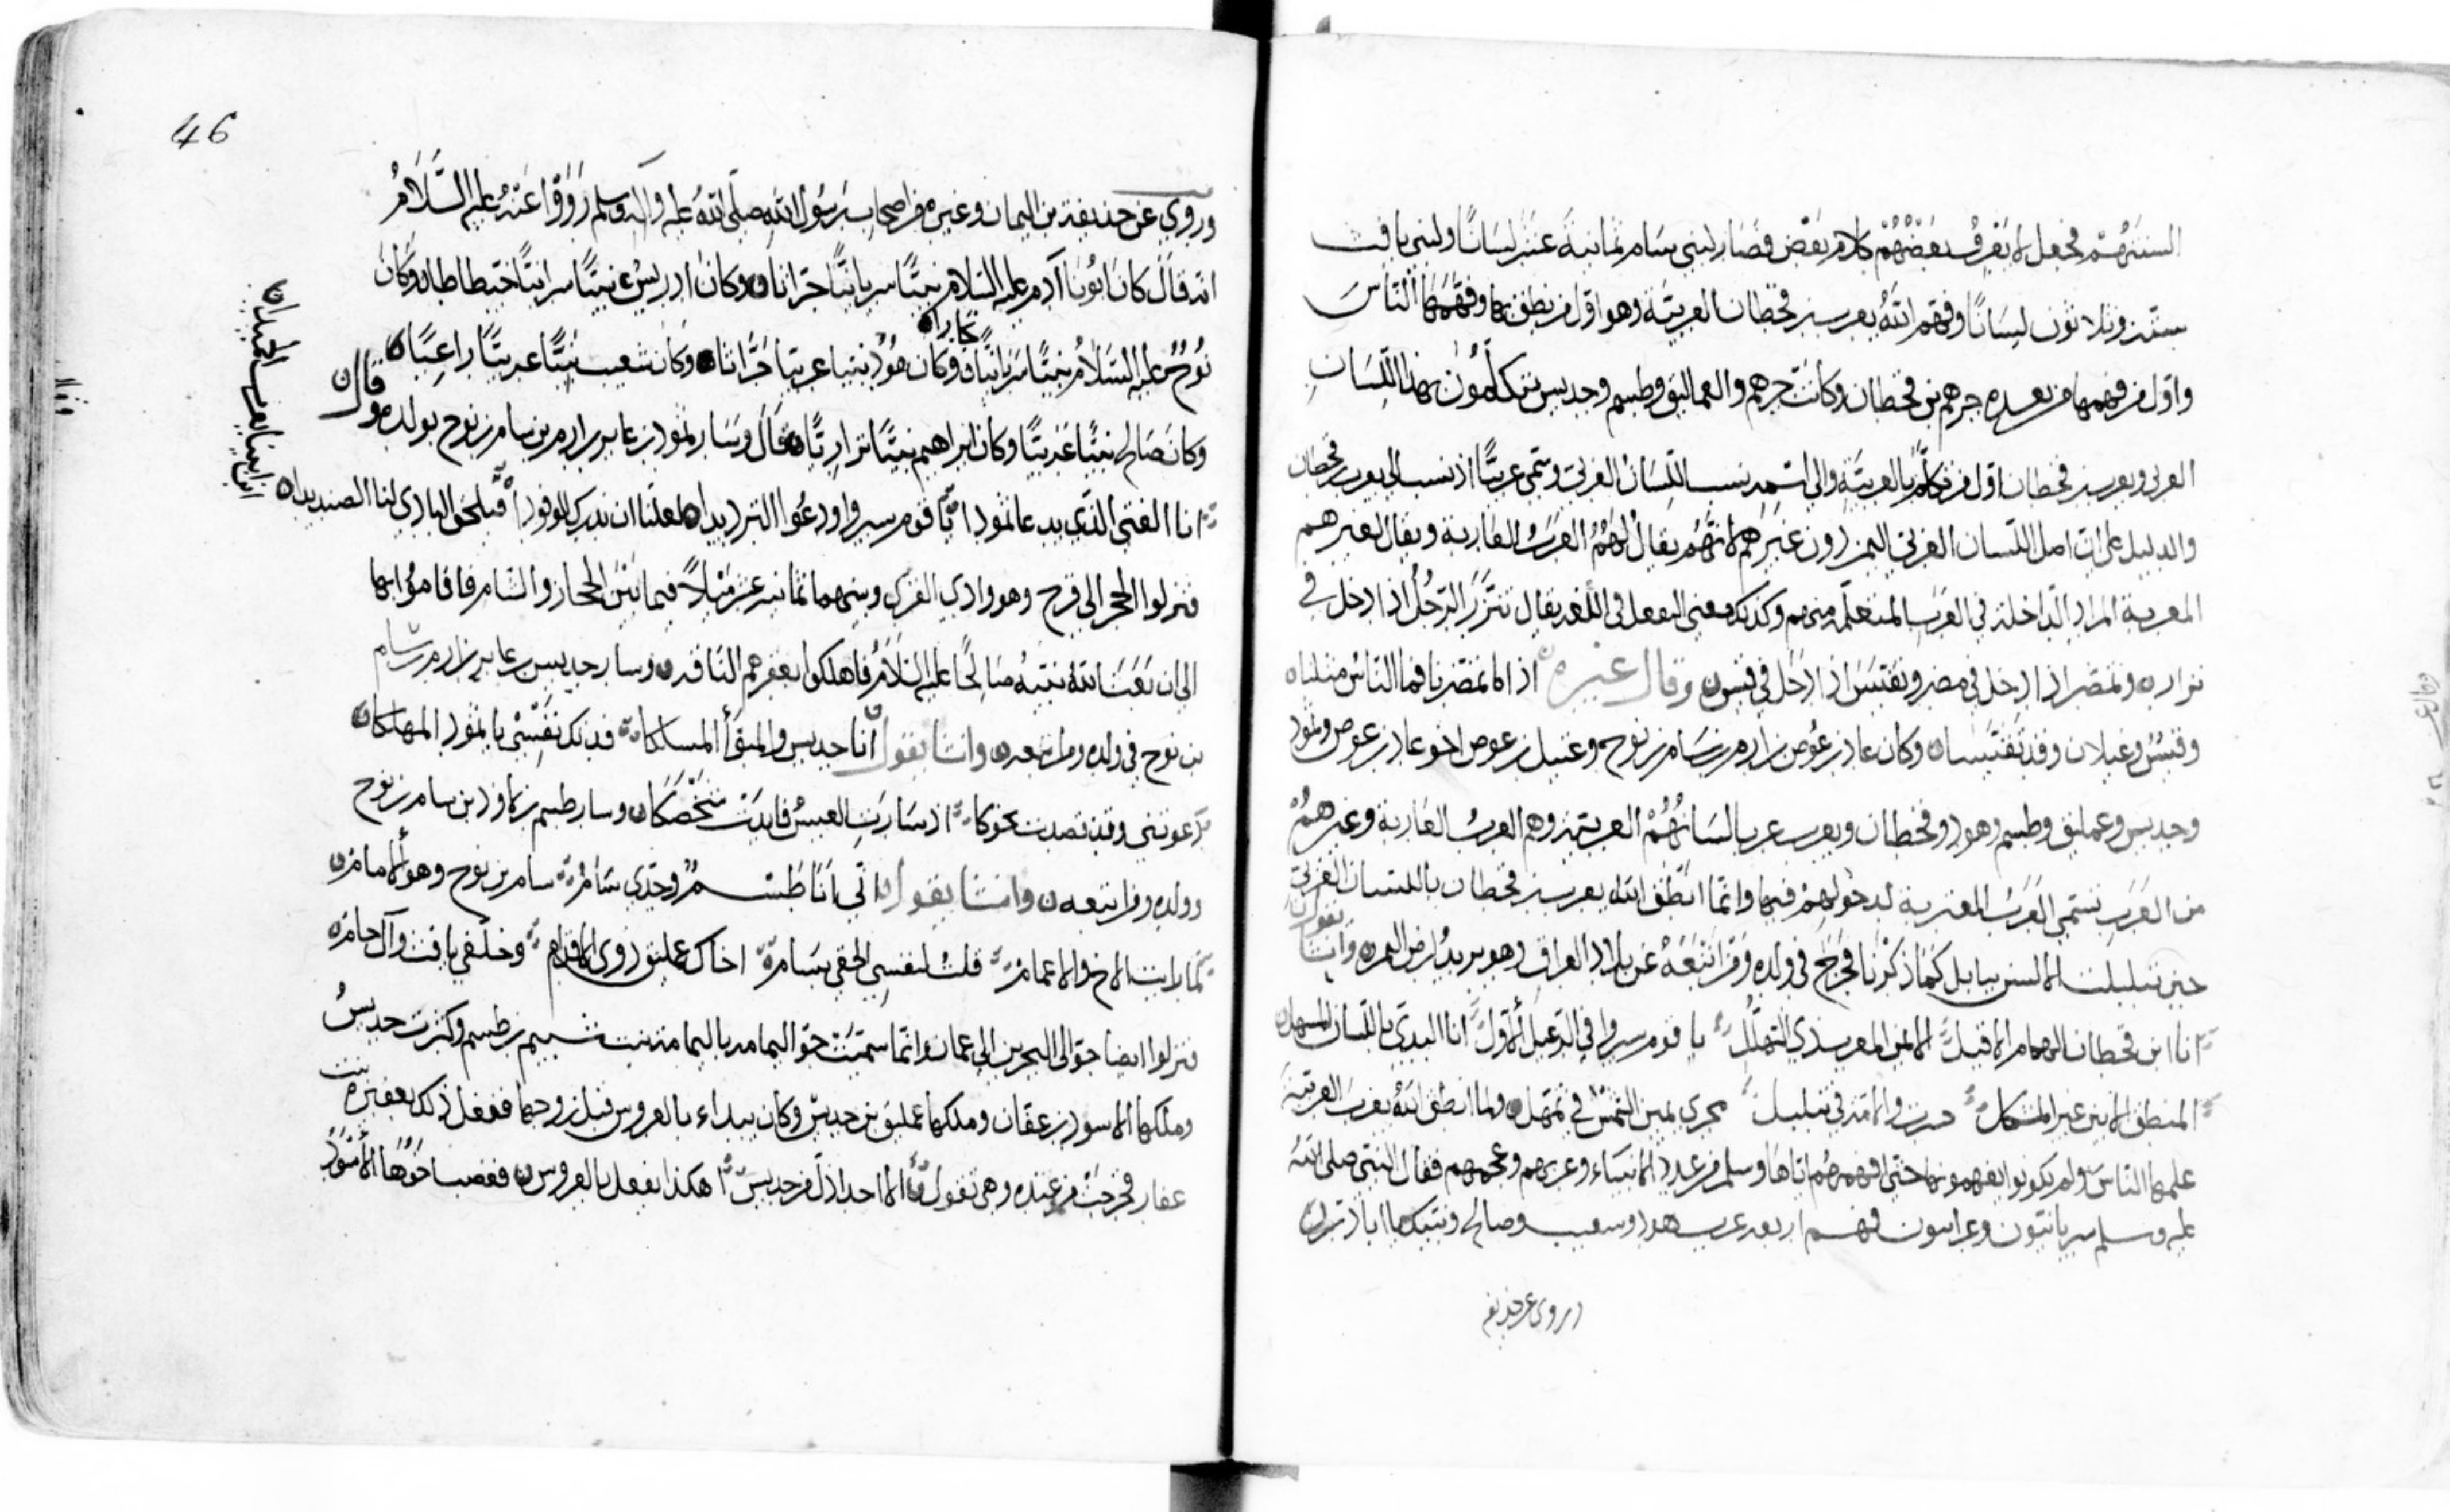 السنتهم فجعل لا يعرف بعضهم كلام بعض فصار لبني سام ثمانية عشر لسانًا ولبني يافث
ستة وثلاثون لسانًا وفهم الله يعرب بن قحطان العربية وهو اول من نطق بها وفهمها الناس
واول من فهمها من بعده جرهم بن قحطان وكانت جرهم والعماليق وطسم وجديس يتكلمون بهذا اللسان
العربي ويعرب بن قحطان اول من تكلم بالعربية والى اسمه نسب اللسان العربي وسمي عربيًا اذ نسب الى يعرب بن قحطان
والدليل على ان اصل اللسان العربي اليمن دون غيرهم لانهم يقال لهم العرب العاربة ويقال لغيرهم
المعربة المراد الداخلة في العرب المتعلمة منهم وكذلك معنى التفعل في اللغة يقال تنزر الرجل اذا دخل في
نزار وتمضر اذا دخل في مضر وتقيس اذا دخل في قيس وقال غيره اذا ما تمضرنا فما الناس مثلنا
وقيس وغيلان وقد تقيسا وكان عاد بن عوص بن ارم بن سام بن نوح وعبيل بن عوص اخو عاد بن عوص وثمود
وجديس وعمليق وطسم وهود وقحطان ويعرب عربا لسانهم العربية وهم العرب العاربة وغيرهم
من العرب تسمى العرب المعربة لدخولهم فيها وانما انطق الله يعرب بن قحطان باللسان العربي
حين تبلبلت الالسن ببابل كما ذكرنا فخرج في ولده ومن اتبعه عن بلاد العراق وهو يريد ارض اليمن وانشا يقول
انا ابن قحطان الهمام الاقيل الايمن المعرب ذي التهلل يا قوم سيروا في الرعيل الاول انا البدي باللسان المسهل
المنطق الابين غير المشكل سرت والامة في تبلبل نجري يمين الشمس في تمهل ولما انطق الله يعرب العربية
علمها الناس ولم يكونوا يفهمونها حتى افهمهم اياها وسلم من عدد الانبياء وعربهم وعجمهم فقال النبي صلى الله
عليه وسلم سريانيون وعرابيون فهم اربعة عرب هود وشعيب وصالح ونبيك يا ابا ذر
وروي عن حذيفة
46
وروي عن حذيفة بن اليمان وغيره من اصحاب رسول الله صلى الله عليه واله وسلم رووا عنه عليه السلام
انه قال كان ابونا آدم عليه السلام نبيًا سريانيًا حراثا وكان ادريس نبيًا سريانيًا خياطا وكان
نوح عليه السلام نبيًا سريانيًا نجارا وكان هود نبيا عربيا حراثا وكان شعيب نبيًا عربيًا راعيًا
وكان صالح نبيًا عربيًا وكان ابراهيم نبيًا قال وسار ثمود بن عابر بن ارم بن سام بن نوح بولده وقال
انا الفتى الذي يدعا ثمودا يا قوم سيروا ودعوا الترديدا لعلنا ان ندرك الوفودا فنلحق البادي لنا الصنديدا
انا ابينا يعرب الحميدا
فنزلوا الحجر الى قرح وهو وادي القرى وبينهما ثمانية عشر ميلاً فيما بين الحجاز والشام فاقاموا بها
الى ان بعث الله نبيه صالحًا عليه السلام فاهلكوا بعقرهم الناقة وسار جديس بن عابر بن ارم بن سام
بن نوح في ولده ومن تبعه وانشا يقول انا جديس والمبقا المسلكا فدتك نفسي يا ثمود المهلكا
دعوتني وقد قصدت نحوكا اذ سارت العيس فابدت شخصكا وسار طسم بن لاوذ بن سام بن نوح
وولده ومن اتبعه وانشا يقول اني انا طسم وجدي سام سام بن نوح وهو الامام
لما رايت الاخ والاعمام قلت لنفسي الحقي بسام اخاك عمليق ذوي الاقدام وخلفي يافث وآل حام
فنزلوا ايضا جو الى البحرين الى عمان وانما سميت جو اليمامة باليمامة بنت تسيم بن طسم وكثرت جديس
وملكها الاسود بن عفان وملكها عمليق بن جديس وكان يبداء بالعروس قبل زوجها ففعل ذلك بعفيرة بنت
عفار فخرجت من عنده وهي تقول لا احد اذل من جديس اهكذا يفعل بالعروس فغضب اخوها الاسود